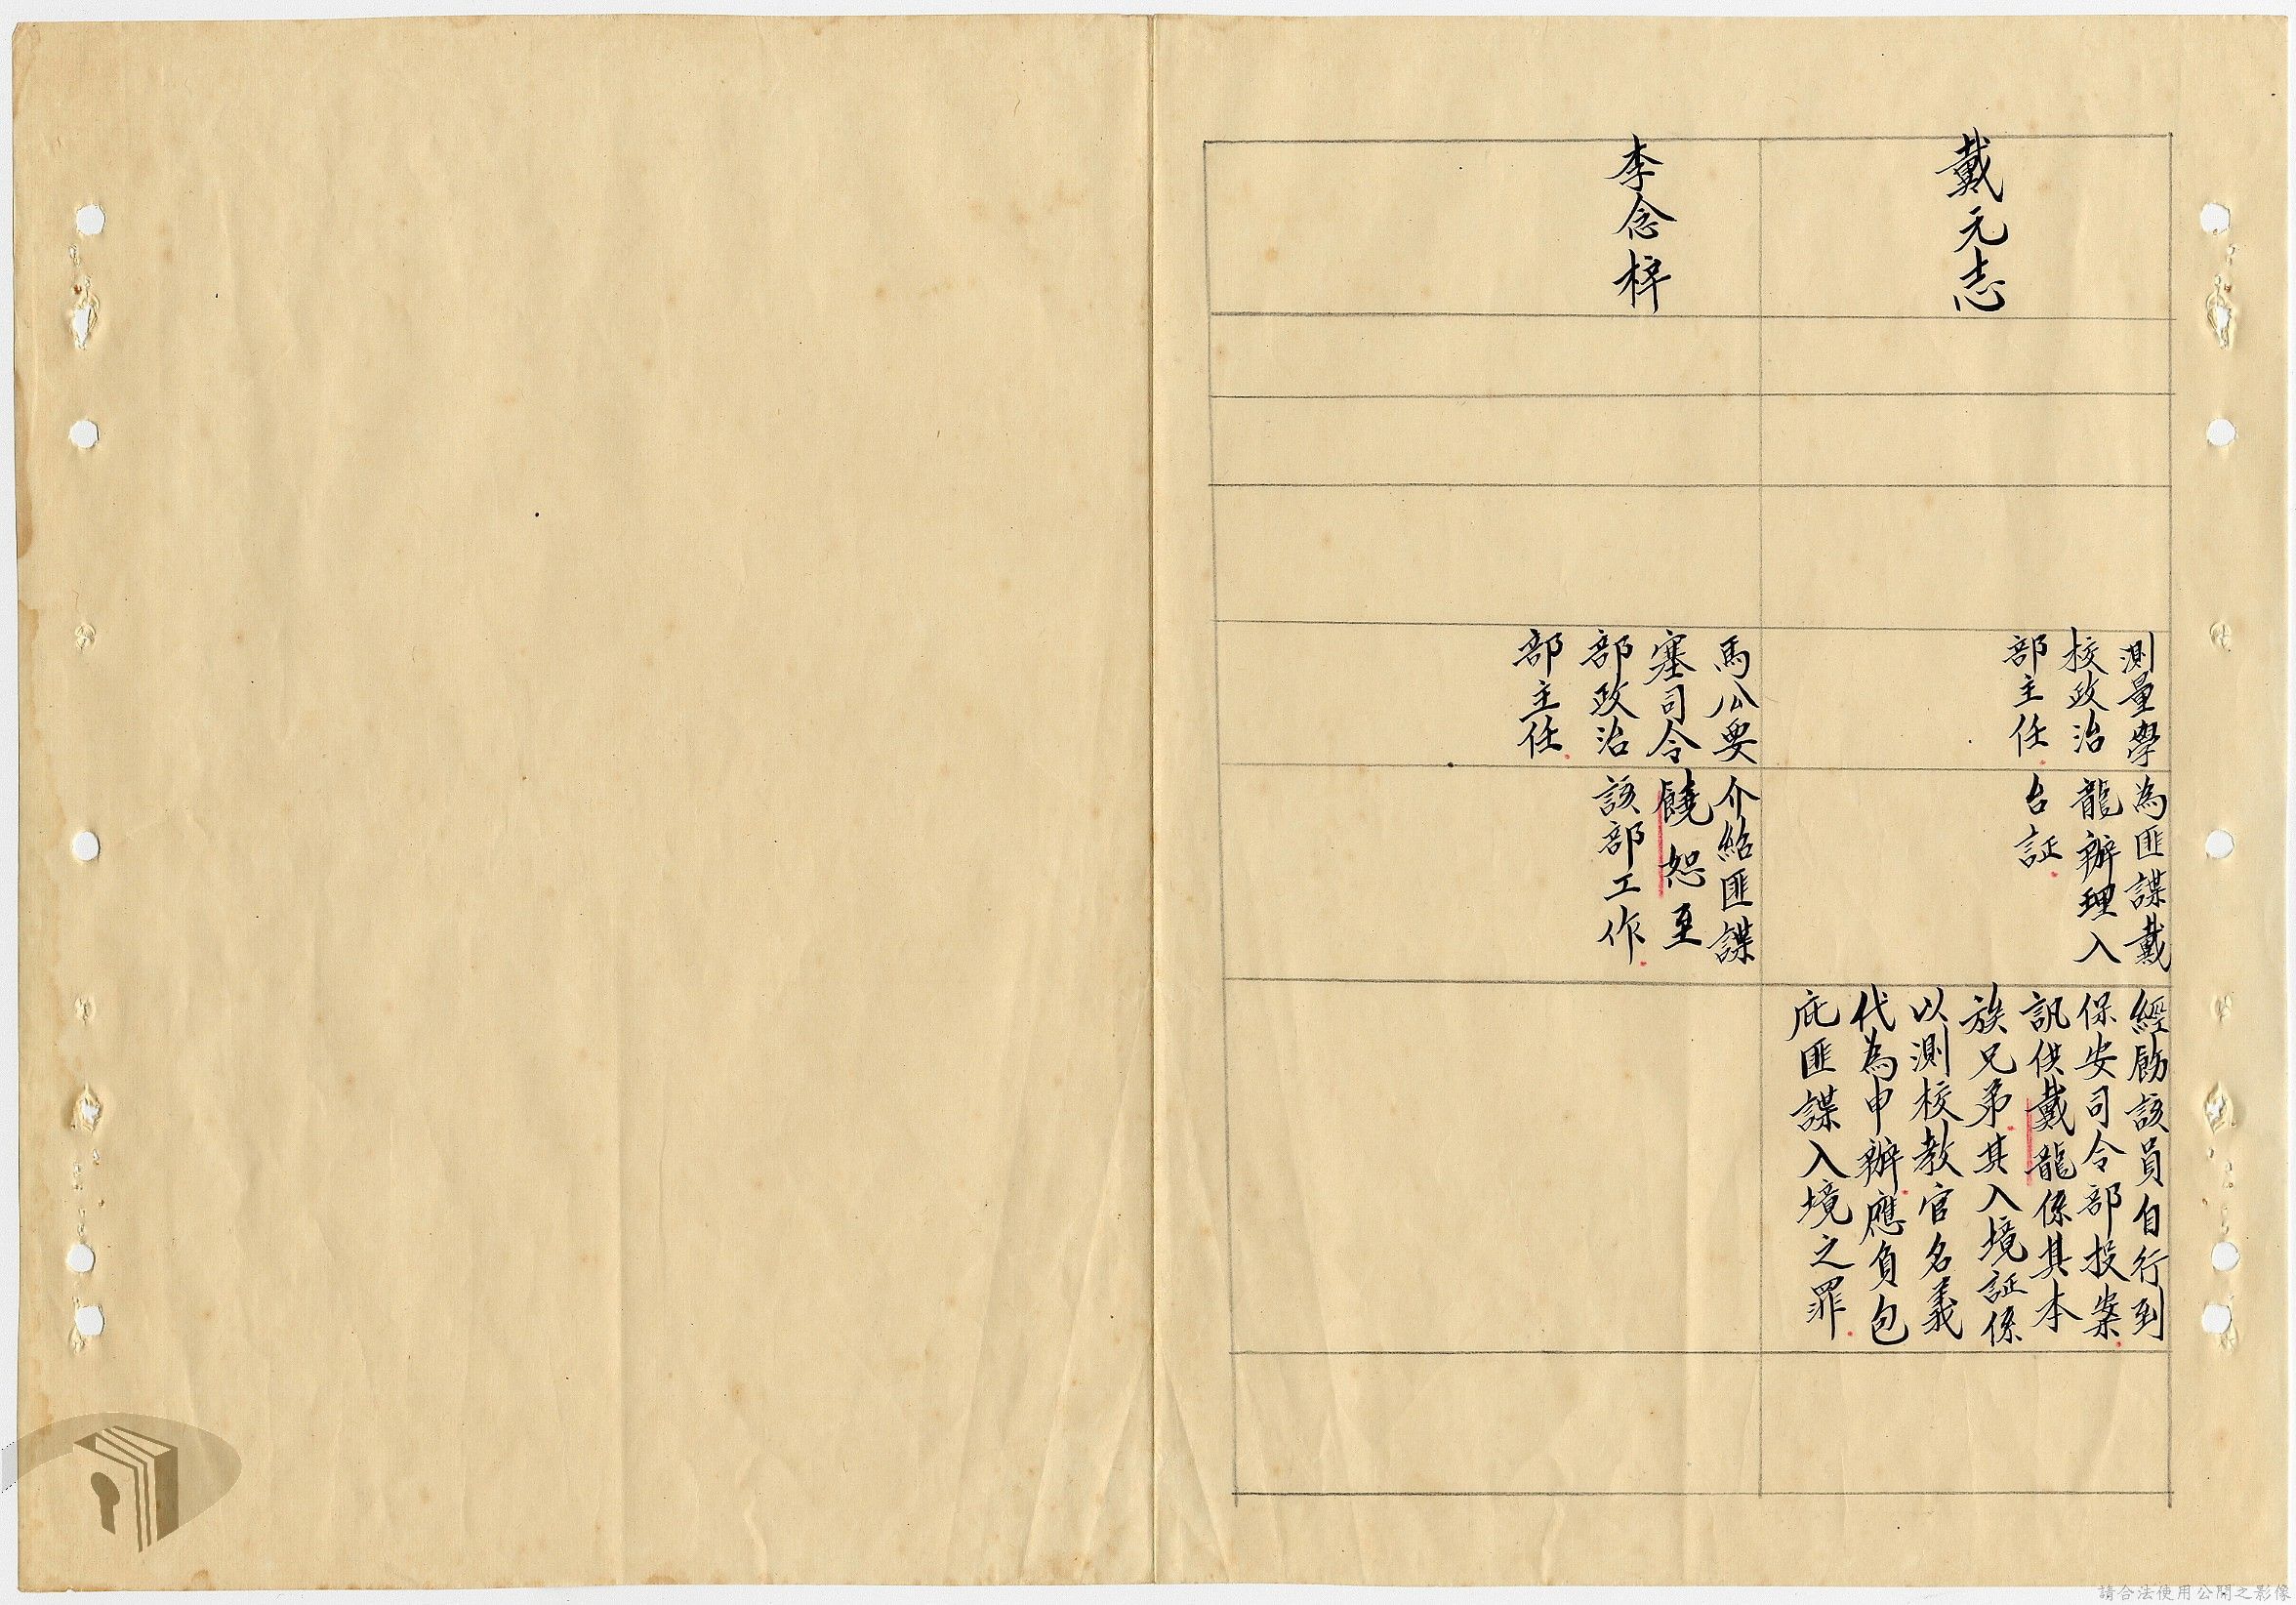 戴元志
測量學
校政治
部主任
為匪諜戴
龍辦理入
台証
經飭該員自行到
保安司令部投案
訊供戴龍係其本
族兄弟其入境証係
以測校教官名義
代為申辦應負包
庇匪諜入境之罪
李念梓
馬公要
塞司令
部政治
部主任
介紹匪諜
饒恕至
該部工作
請合法使用公開之影像